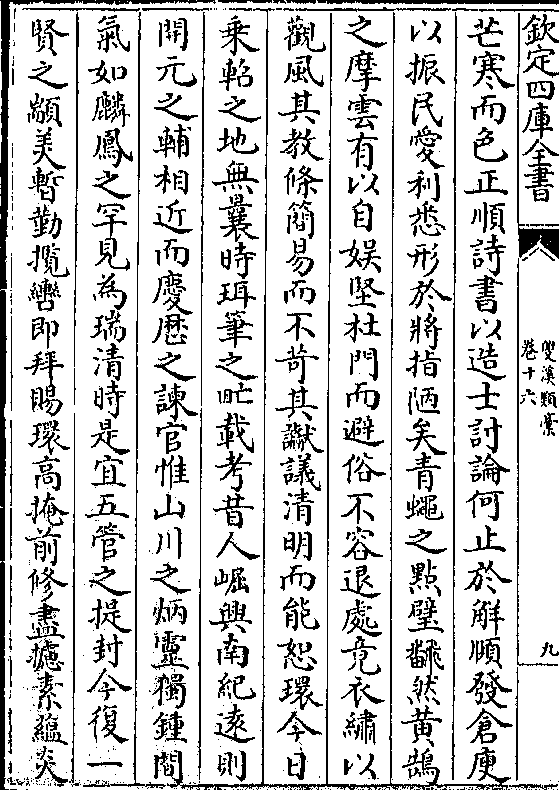 欽定四庫全書
雙溪類稾
卷十六
九
芒寒而色正順詩書以造士討論何止於解頤發倉庾
以振民愛利悉形於將指陋矣青蠅之點璧飜然黄鵠
之摩雲有以自娱堅杜門而避俗不容退處竟衣繡以
觀風其教條簡易而不苛其讞議清明而能恕環今日
乗軺之地無曩時珥筆之氓載考昔人崛興南紀逺則
開元之輔相近而慶厯之諫官惟山川之炳靈獨鍾間
氣如麟鳳之罕見為瑞清時是宜五管之提封今復一
賢之顓美暫勤攬轡即拜賜環髙掩前修盡攄素藴炎